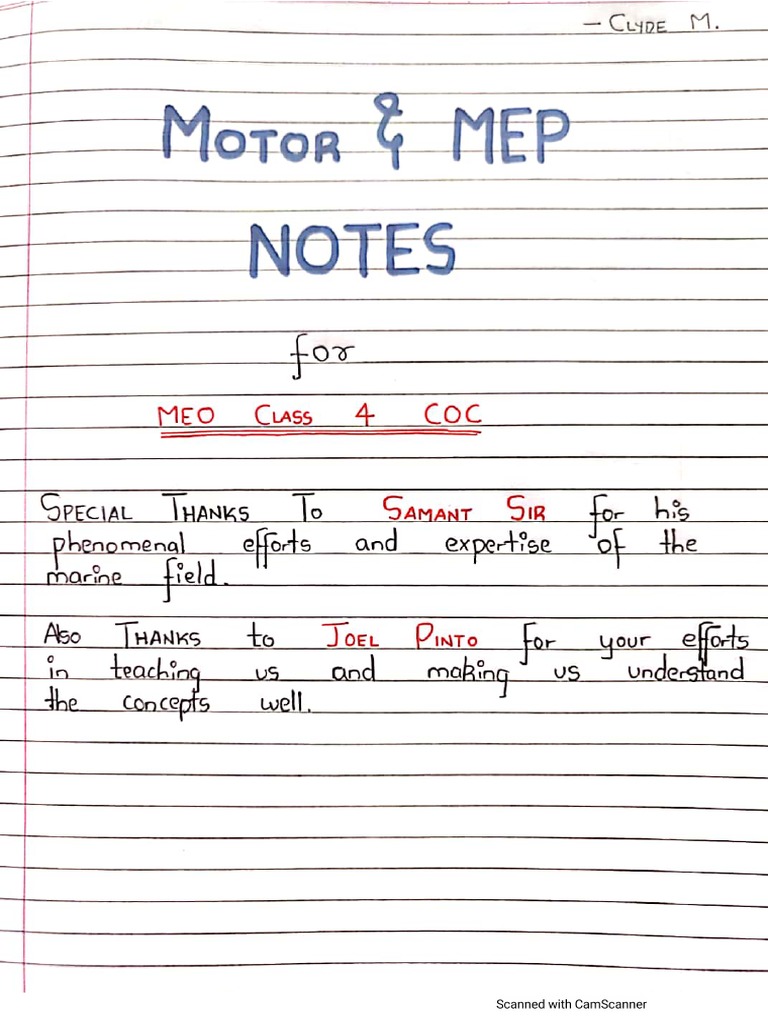 – CLYDE M.
MOTOR & MEP
NOTES
for
MEO CLASS 4 COC
SPECIAL THANKS TO SAMANT SIR for his
phenomenal efforts and expertise of the
marine field.
Also THANKS to JOEL PINTO for your efforts
in teaching us and making us understand
the concepts well.
Scanned with CamScanner